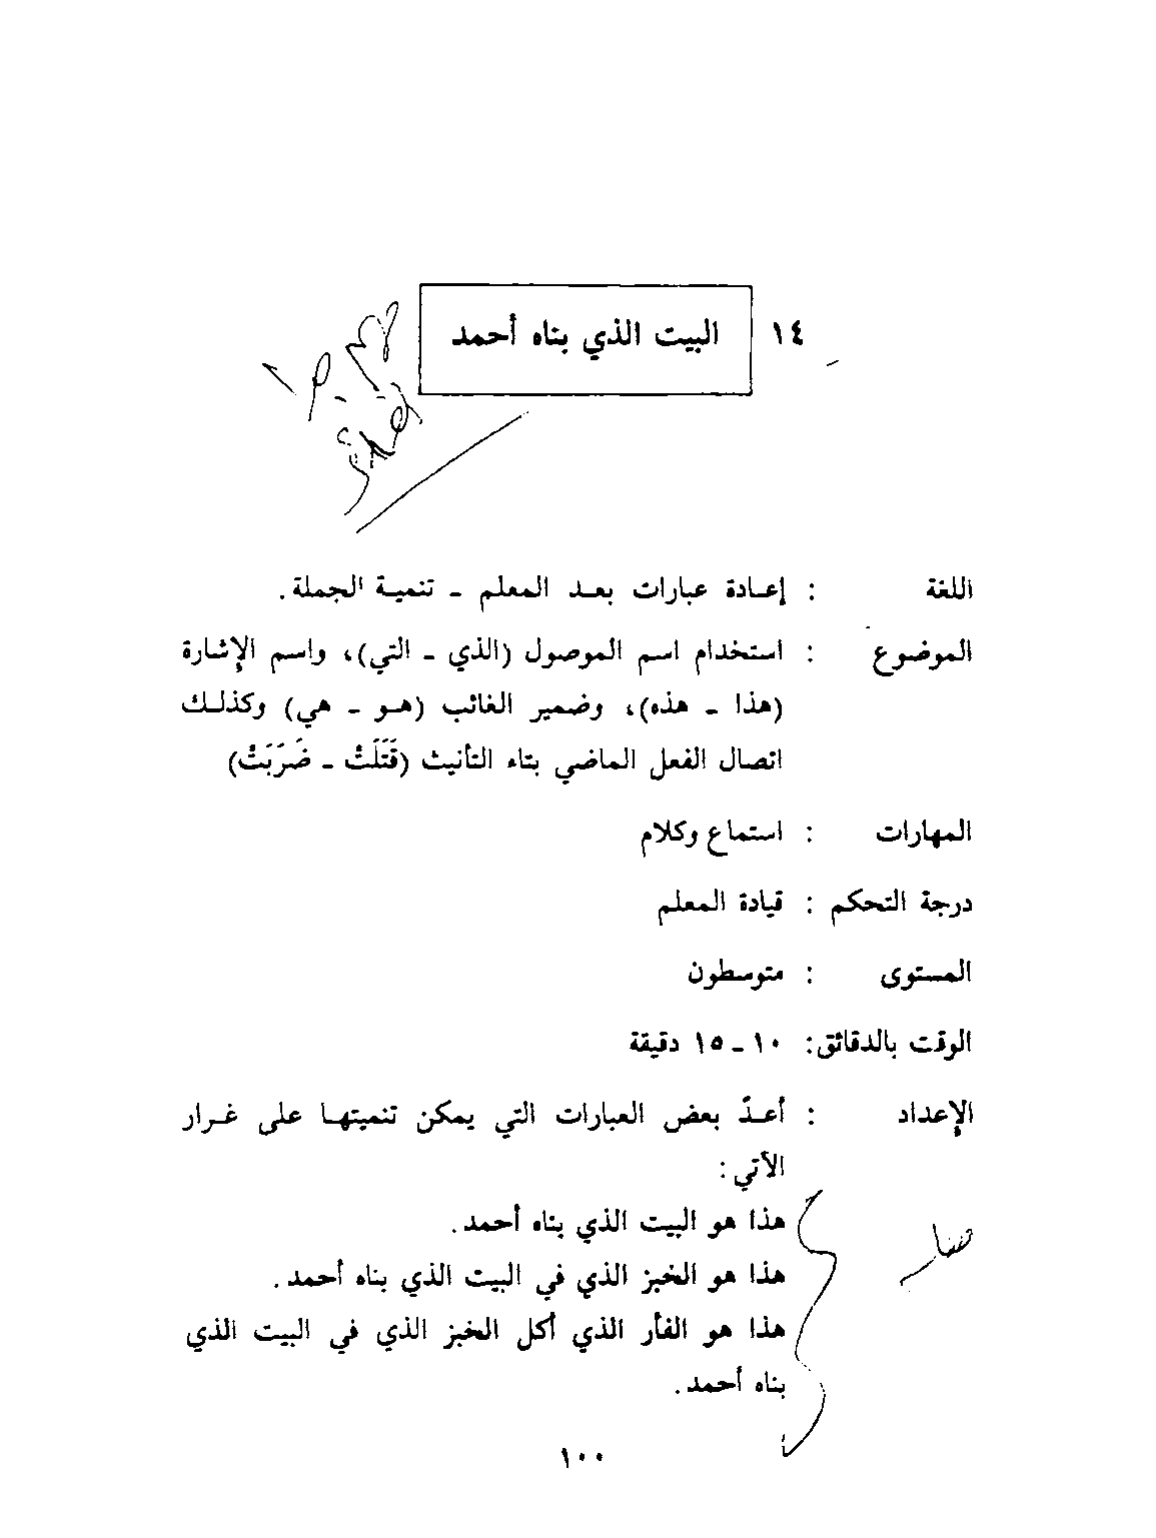 ١٤ البيت الذي بناه أحمد
اللغة : إعادة عبارات بعد المعلم ـ تنمية الجملة.
الموضوع : استخدام اسم الموصول (الذي ـ التي)، واسم الإشارة
(هذا ـ هذه)، وضمير الغائب (هو ـ هي) وكذلك
اتصال الفعل الماضي بتاء التأنيث (قَتَلَتْ ـ ضَرَبَتْ)
المهارات : استماع وكلام
درجة التحكم : قيادة المعلم
المستوى : متوسطون
الوقت بالدقائق: ١٠ ـ ١٥ دقيقة
الإعداد : أعدّ بعض العبارات التي يمكن تنميتها على غرار
الآتي:
هذا هو البيت الذي بناه أحمد.
هذا هو الخبز الذي في البيت الذي بناه أحمد.
هذا هو الفأر الذي أكل الخبز الذي في البيت الذي
بناه أحمد.
١٠٠